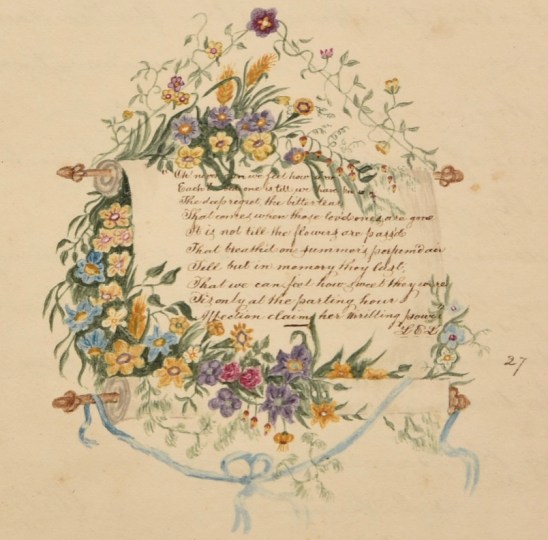 "Oh never can we feel how
Each is till we have
The deep regret, the bitter tear
That comes when those loved ones are gone
It is not till the flowers are passd
That breathd on summer's perfumd air
Till but in memory they last,
That we can feel how sweet they were
Tis only at the parting hour
Affection claims her thrilling power"
L.E.L
27